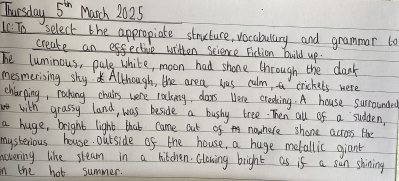 Thursday 5th March 2025
LC: To select the appropiate structure, vocabulary and grammar to
create an effective written science fiction build up.
The luminous, pale white, moon had shone through the dark
mesmerising sky. Although, the area was calm, crickets were
chirping, rocking chairs were rocking, doors were creaking. A house surrounded
with grassy land, was beside a bushy tree. Then all of a sudden,
a huge, bright light that came out of nowhere shone across the
mysterious house. Outside of the house, a huge metallic giant
hovering like steam in a kitchen. Glowing bright as if a sun shining
in the hot summer.